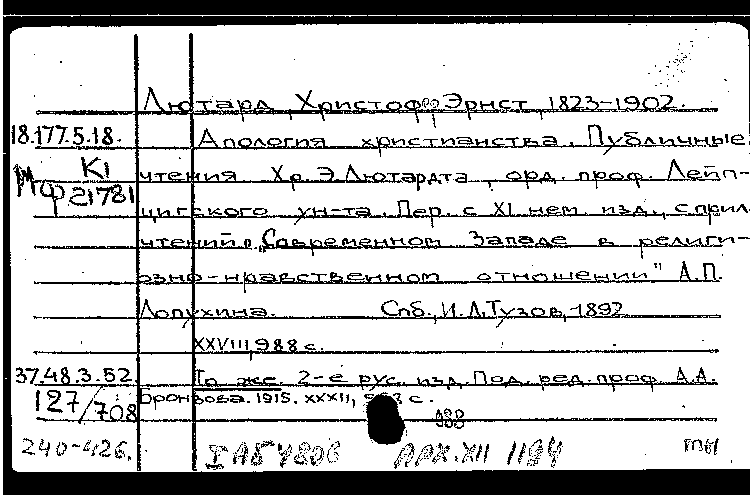 Лютард, Христоф Эрнст, 1823-1902.
18.177.5.18. Апология христианства. Публичные
К1 чтения Хр. Э. Лютардта, орд. проф. Лейп-
Мф 21781 цигского ун-та. Пер. с XI нем. изд., с прил.
чтений о „Современном Западе в религи-
озно-нравственном отношении" А.П.
Лопухина. Спб., И.Л. Тузов, 1892
XXVIII, 988 с.
37.48.3.52 То же. 2-е рус. изд. Под. ред. проф. А.А.
127/708 Бронзова. 1915. XXXII, с.
240-426. I АБ 4806 АРХ.XII 1194